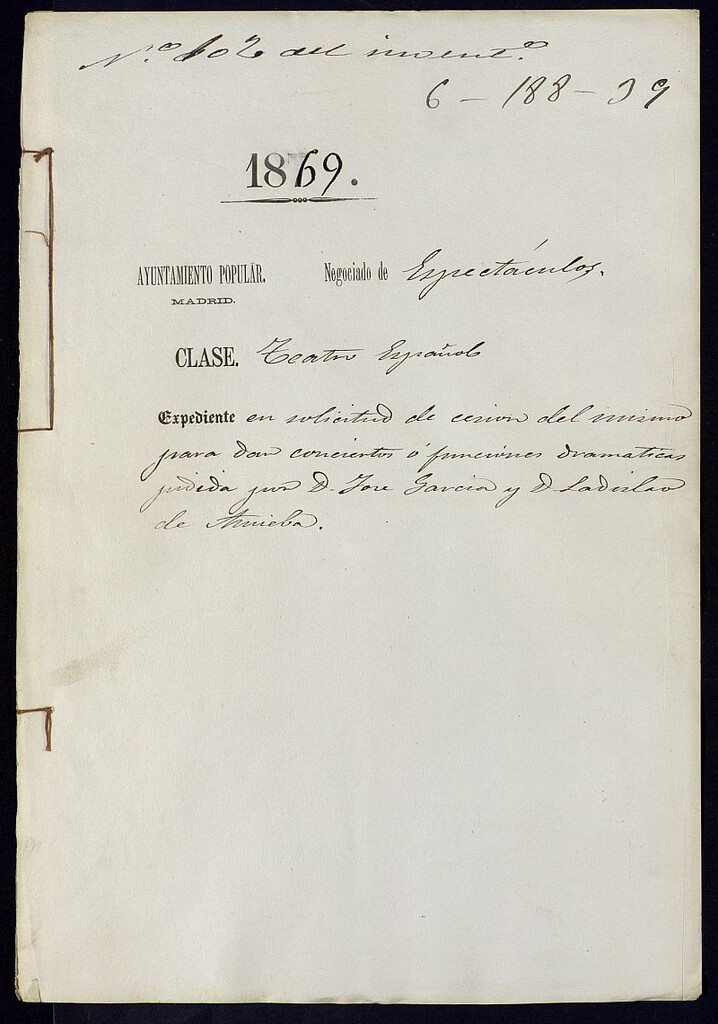 N.º 102 del invent.º
6 - 188 - 39
1869.
AYUNTAMIENTO POPULAR. Negociado de Espectáculos.
MADRID.
CLASE. Teatro Español
Expediente en solicitud de cesion del mismo
para dar conciertos ó funciones dramaticas
pidida por D. Jose Garcia y D. Ladislao
de